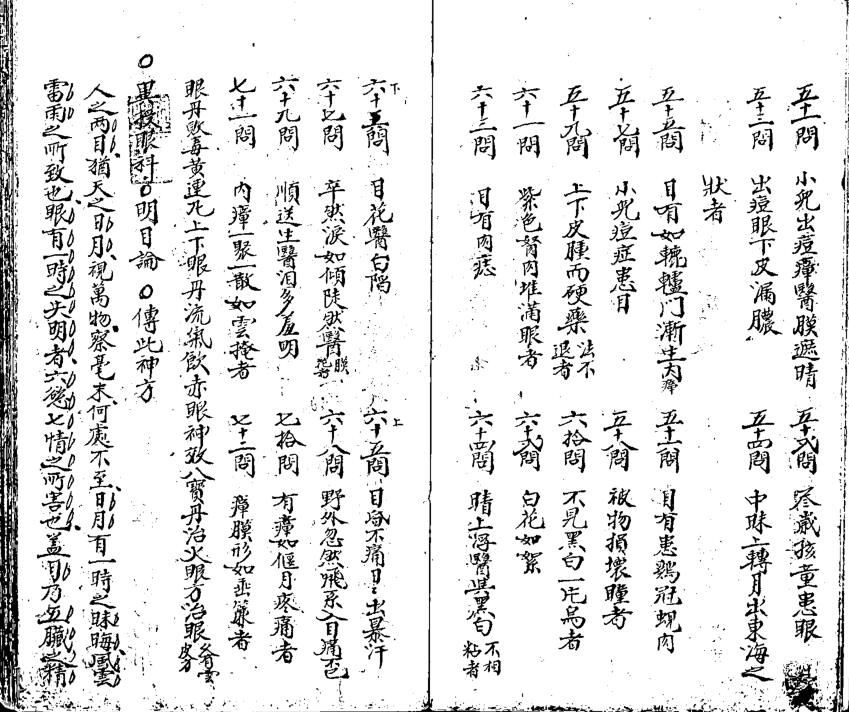 五十一問 小兒出痘瘴醫膜遮睛 五十弍問 叁歲孩童患眼
五十三問 出痘眼下皮漏膿 五十四問 中昧上轉月出東海之
狀者
五十五問 目有如轆轤門漸生內障 五十六問 目有患鷄冠蜆肉
五十七問 小兒痘症患目 五十八問 被物損壞瞳者
五十九問 上下皮腫而硬藥法不退者 六拾問 不見黑白一片烏者
六十一問 紫色胬肉堆滿眼者 六十弍問 白花如絮
六十三問 泪有肉痣 六十四問 睛上浮醫黑白不相粘者
下六十五問 目花醫白陷 上六十五問 目不痛日日出暴汗
六十七問 卒然淚如傾陡然醫膜 六十八問 野外忽然飛系入目痛
六十九問 順逆生醫泪多羞明 七拾問 有瘴如偃月疼痛者
七十一問 內瘴一聚一散如雲掩者 七十二問 瘴膜形如垂簾者
眼丹敗毒黃連凡上下眼丹流氣飲赤眼神效八寳丹治火眼方治眼
○ 里授眼科 ○ 明目論 ○ 傳此神方
人之两目猶天之日月視萬物察毫末何處不至日月有一時之昧晦風雲
雷雨之所致也眼有一時之失明者六慾七情之所害也盖目乃五臟之精